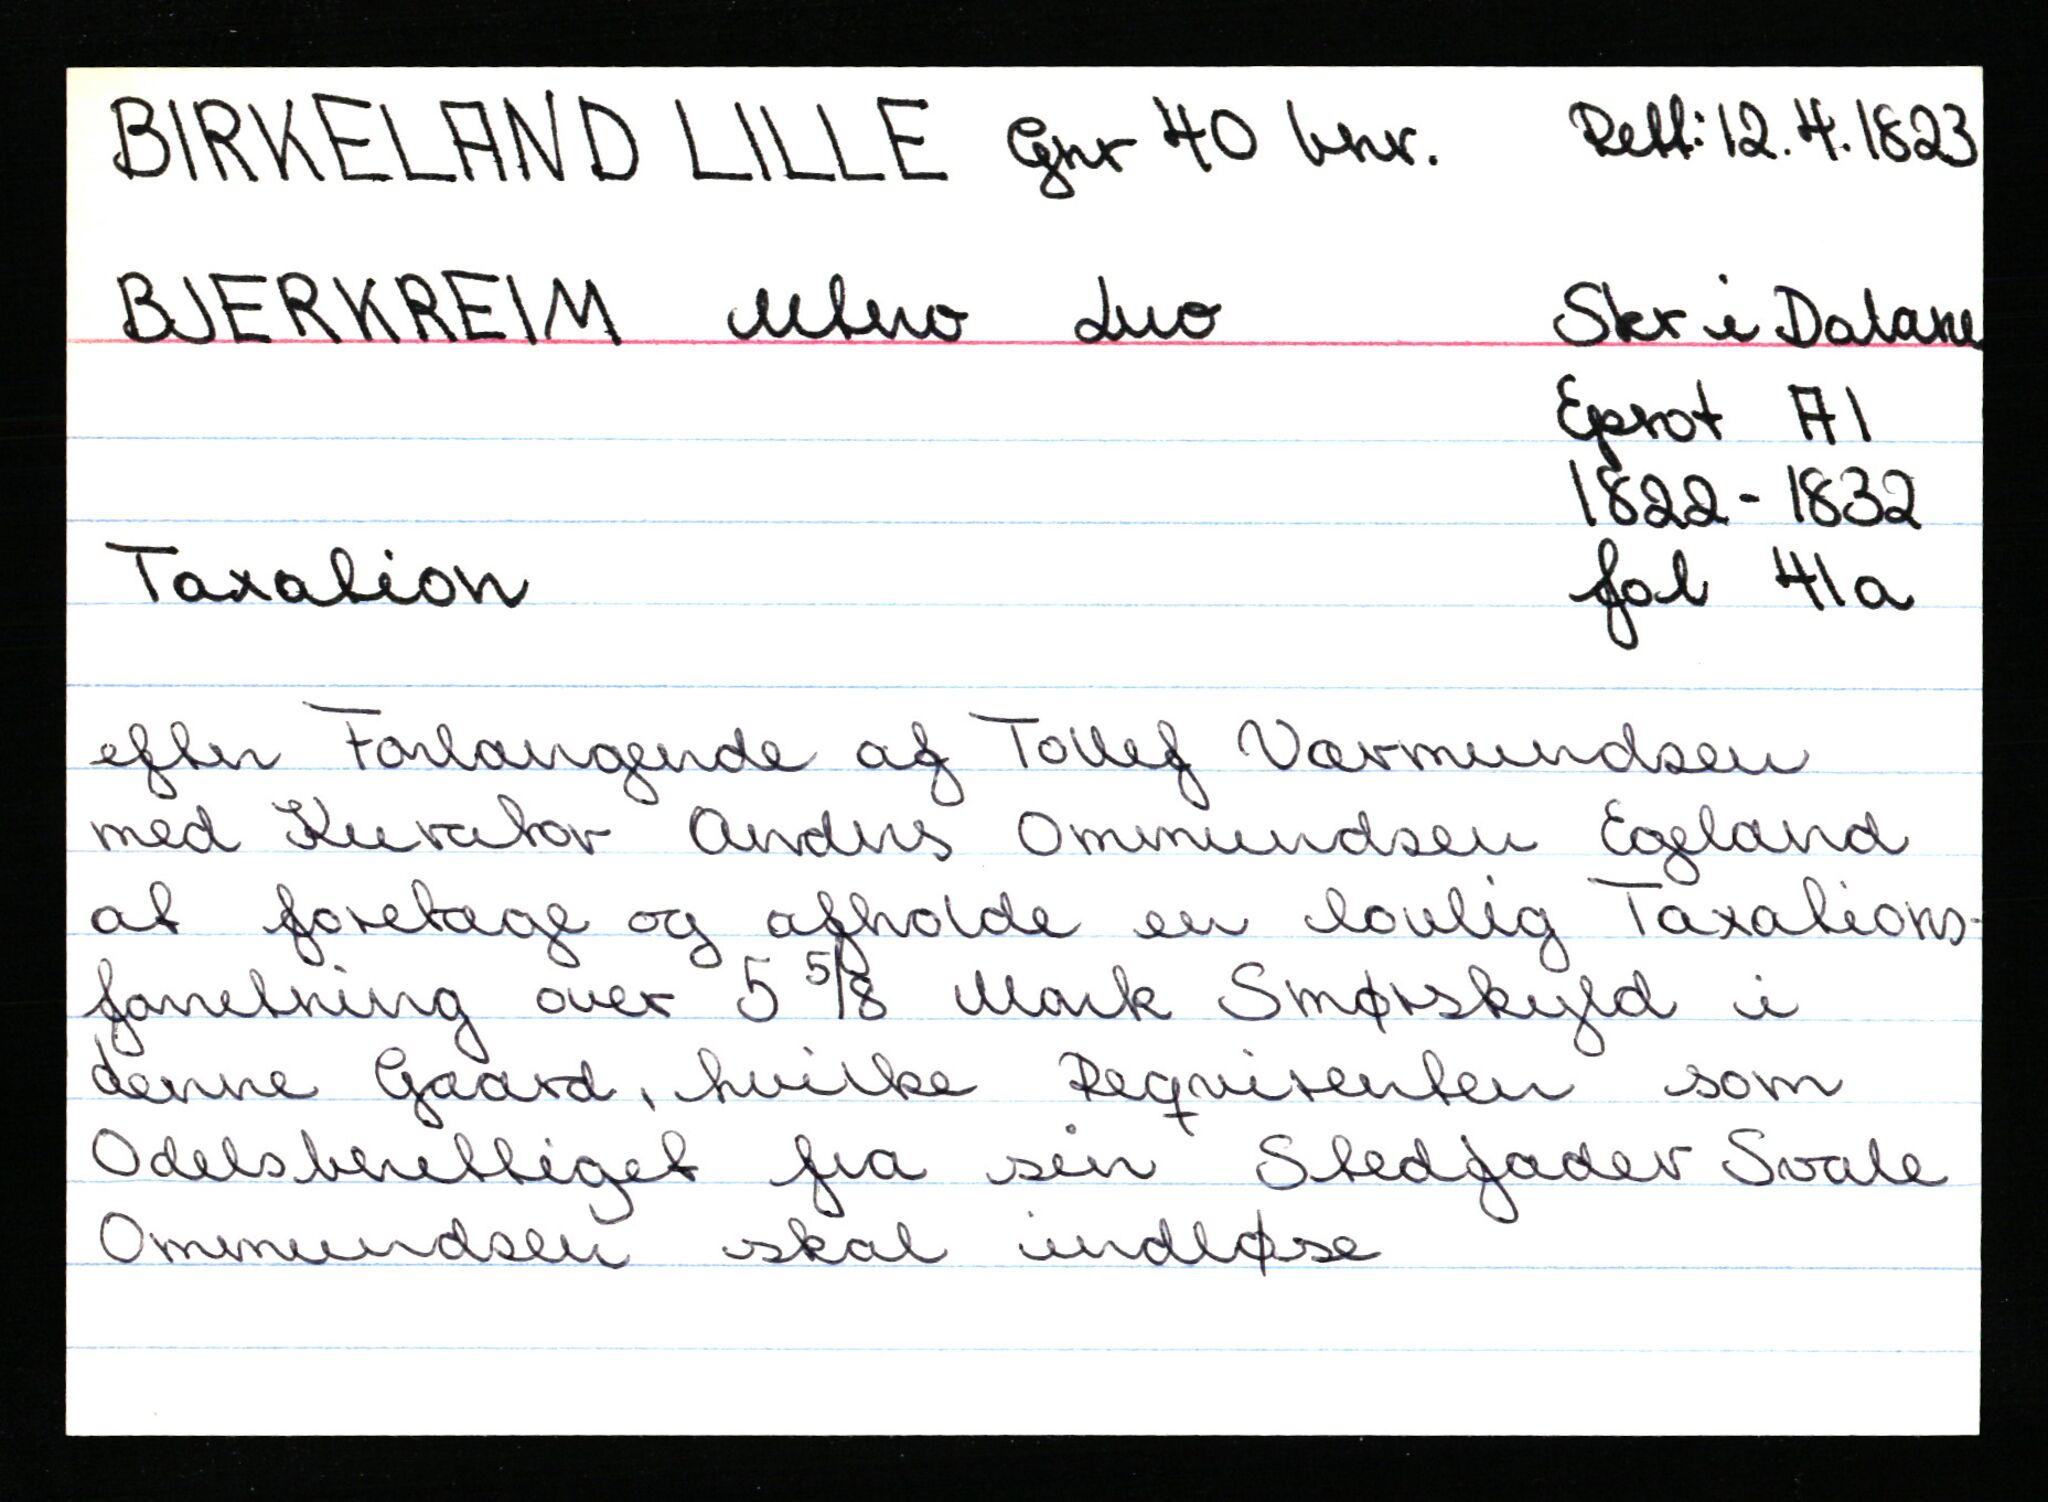 BIRKELAND LILLE Gnr 40 bnr. Rett: 12.4.1823
BJERKREIM Mtno Lno Skr i Dalane
Eprot A1
1822-1832
Taxation fol 41a
efter Forlangende af Tollef Værmundsen
med Kurator Anders Ommundsen Egeland
at foretage og afholde en lovlig Taxations-
forretning over 5 5/8 Mark Smørskyld i
denne Gaard, hvilke Requirenten som
Odelsberettiget fra sin Stedfader Svale
Ommundsen skal indløse